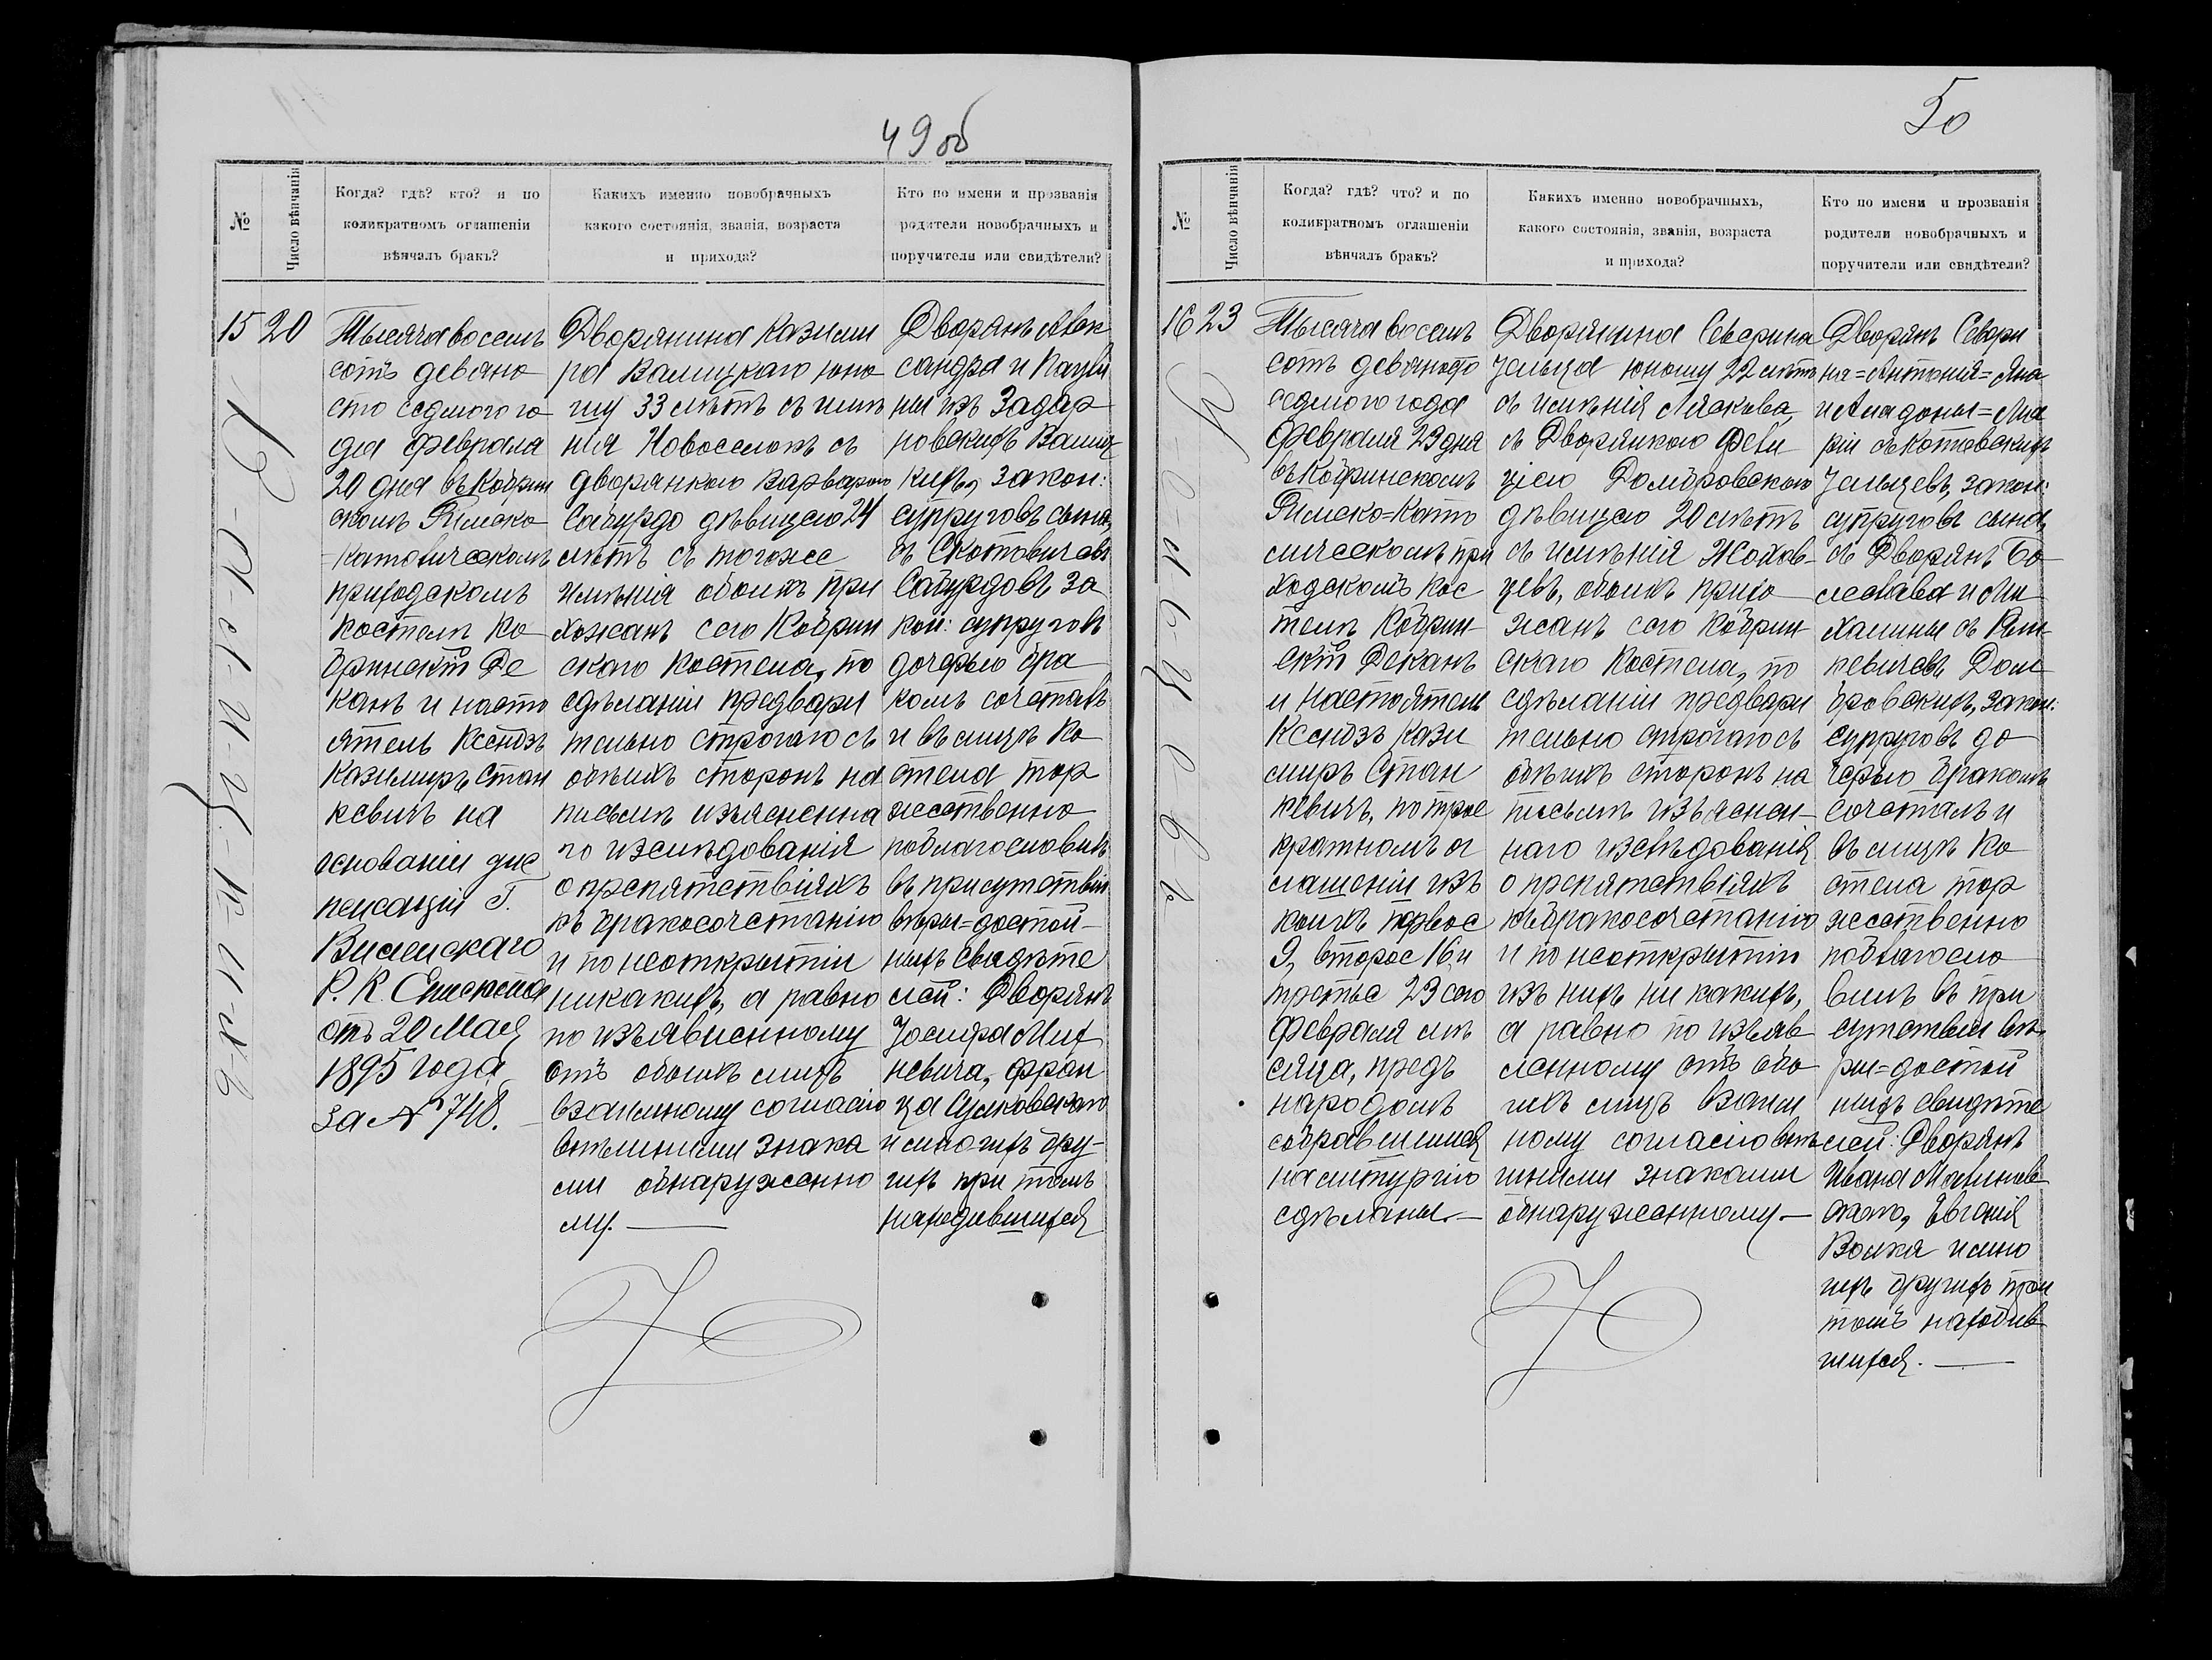 49 об
№
Число вѣнчанія
Когда? гдѣ? кто? и по
коликратномъ оглашеніи
вѣнчалъ бракъ?
Какихъ именно новобрачныхъ
какого состоянія, званія, возраста
и прихода?
Кто по имени и прозванія
родители новобрачныхъ и
поручители или свидѣтели?
15
20
Тысяча восемь
сотъ девяно
сто седмого го
да февраля
20 дня въ Кобрин
скомъ Римско
-католическомъ
приходскомъ
костелѣ Ко
бринскій Де
канъ и насто
ятель Ксендзъ
Казимиръ Стан
кевичъ на
основаніи дис
пенсаціи Г.
Виленскаго
Р. К. Епископа
отъ 20 Мая
1895 года
за № 748.
Дворянина Казими
ра Валицкаго юно
шу 33 лѣтъ съ имѣ
нія Новоселокъ съ
дворянкою Варварою
Сабурдо дѣвицею 24
лѣтъ съ тогоже
имѣнія обоихъ при
хожанъ сего Кобрин
скаго костела, по
сдѣланіи предвари
тельно строгаго съ
обѣихъ сторонъ на
письмѣ изъясненна
го изслѣдованія
о препятствіяхъ
къ бракосочетанію
и по неоткрытіи
никакихъ, а равно
по изъявленному
отъ обоихъ лицъ
взаимному согласію
внѣшними знака
ми обнаруженно
му.
Дворянъ Алек
сандра и Паули
ны изъ Задар
новскихъ Валиц
кихъ, закон:
супруговъ сына,
съ Скотовичевъ
Сабурдовъ за
кон: супруговъ
дочерью бра
комъ сочеталъ
и въ лицѣ Ко
стела тор
жественно
поблагословилъ
въ присутствіи
вѣры=достой-
ныхъ свидѣте
лей: Дворянъ
Іосифа Мих
невича, Фран
ца Сулковскаго
и многихъ дру-
гихъ при томъ
находившихся
50
№
Число вѣнчанія
Когда? гдѣ? что? и по
коликратномъ оглашеніи
вѣнчалъ бракъ?
Какихъ именно новобрачныхъ,
какого состоянія, званія, возраста
и прихода?
Кто по имени и прозванія
родители новобрачныхъ и
поручители или свидѣтели?
16
23
Тысяча восемь
сотъ девяносто
седмого года
Февраля 23 дня
въ Кобринскомъ
Римско=Като
лическомъ при
ходскомъ кос
телѣ Кобрин-
скій Деканъ
и настоятель
Ксендзъ Кази
миръ Стан
кевичъ, по трое
кратномъ ог
лашеніи изъ
коихъ первое
9, второе 16, и
третье 23 сего
февраля мѣ
сяца, предъ
народомъ
собравшимся
на литургію
сдѣланы.
Дворянина Северина
Ельца юношу 22 лѣтъ
съ имѣнія Ляскова,
съ Дворянкою Фели
ціею Домбровскою
дѣвицею 20 лѣтъ
съ имѣнія Жохов-
цевъ, обоихъ прихо
жанъ сего Кобрин-
скаго Костела, по
сдѣланіи предвари
тельно строгаго съ
обѣихъ сторонъ на
письмѣ изъяснен-
наго изслѣдованія
о препятствіяхъ
къ бракосочетанію
и по неоткрытіи
изъ нихъ ни какихъ,
а равно по изъяв
ленному отъ обо
ихъ лицъ взаим
ному согласію внѣ
шними знаками
обнаруженному
Дворянъ Севери
на=Антонія=Яна
и =Ма
ріи съ Котовскихъ
Ельцевъ, закон:
супруговъ сына,
съ Дворянъ Бо
леслава и Ми
халины съ
кевичевъ Дом
бровскихъ, закон:
супруговъ до
черью бракомъ
сочеталъ и
въ лицѣ Ко
стела тор
жественно
поблагосло
вилъ въ при
сутствіи вѣ
ры=достой
ныхъ свидѣте
лей: Дворянъ
Ивана Малинов
скаго, Евгенія
Волка и мно
гихъ другихъ при
томъ находив
шихся.